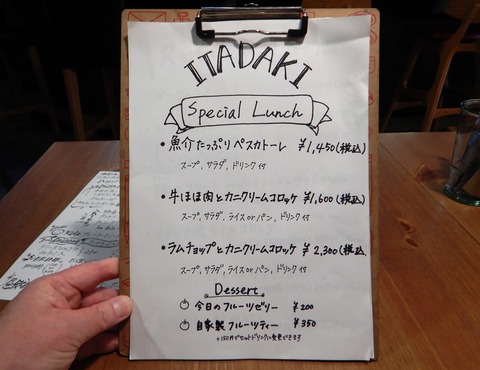 ITADAKI
Special Lunch
・魚介たっぷりペスカトーレ ¥1,450(税込)
スープ, サラダ, ドリンク付
・牛ほほ肉とカニクリームコロッケ ¥1,600(税込)
スープ, サラダ, ライス or パン, ドリンク付
・ラムチョップとカニクリームコロッケ ¥2,300(税込
スープ, サラダ, ライス or パン, ドリンク付
Dessert
今日のフルーツゼリー ¥200
自家製フルーツティー ¥350
+150円でセットドリンクに変更できます